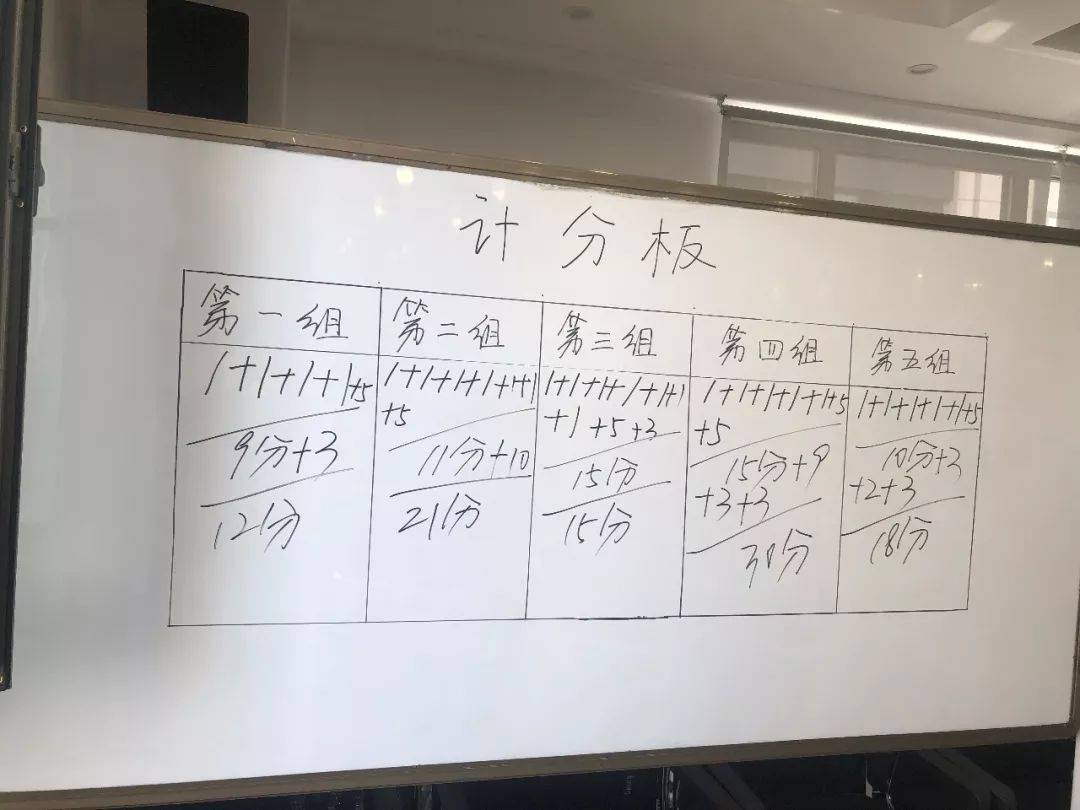 计分板
第一组 第二组 第三组 第四组 第五组
1+1+1+1+5
9分+3
12分
1+1+1+1+1+1
+5
11分+10
21分
1+1+1+1+1+1
+1+5+3
15分
15分
1+1+1+1+1+5
+5
15分+9
+3+3
30分
1+1+1+1+1+5
10分+3
+2+3
18分